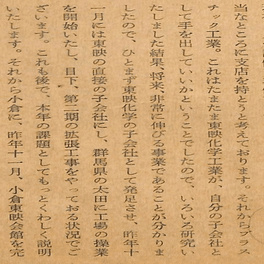 当なところに支店を持とうと考えております。それからプラス
チック工業。これはたまたま東映化学工業が、自分の子会社と
して手を出していいかということでしたので、いろいろ研究い
たしました結果、将来、非常に伸びる事業であることが分かりま
したので、ひとまず東映化学の子会社として発足させ、昨年十
一月には東映の直接の子会社にし、群馬県の太田に工場の操業
を開始いたし、目下、第二期の拡張工事をやっておる状況でご
ざいます。これも後で、本年の課題としてもっとくわしく説明
いたします。それから小倉に、昨年十一月、小倉東映会館を完